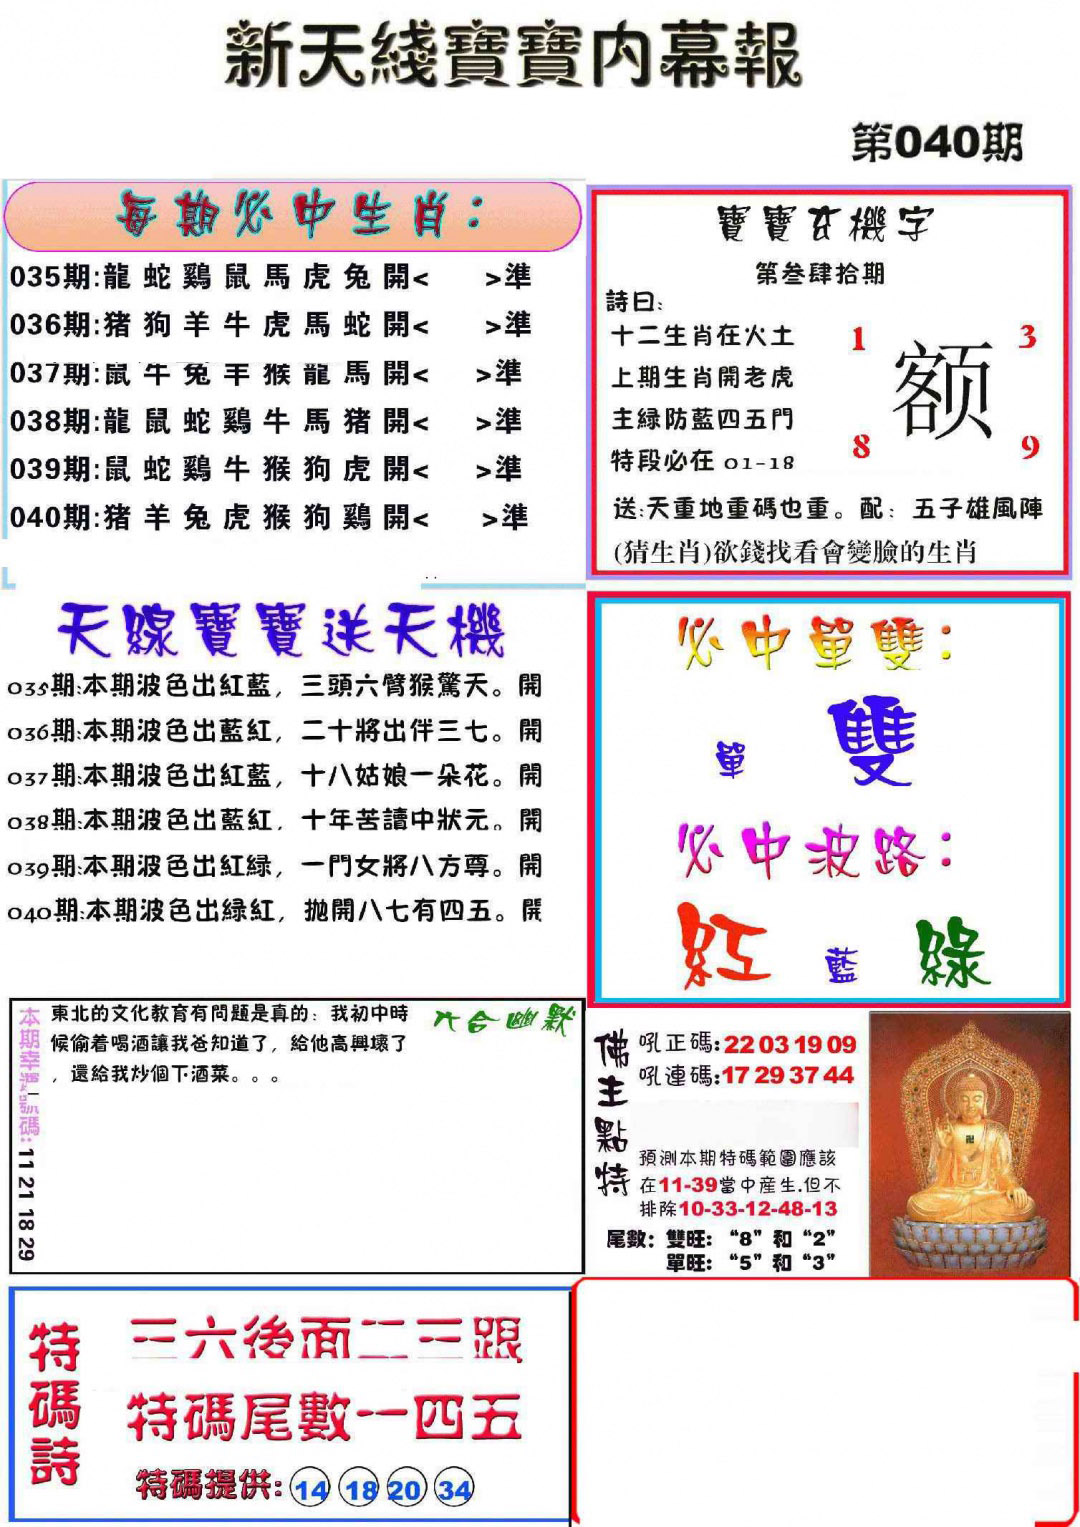 新天綫寶寶内幕報
第040期
每期必中生肖：
035期:龍蛇鷄鼠馬虎兔開< >準
036期:猪狗羊牛虎馬蛇開< >準
037期:鼠牛兔羊猴龍馬開< >準
038期:龍鼠蛇鷄牛馬猪開< >準
039期:鼠蛇鷄牛猴狗虎開< >準
040期:猪羊兔虎猴狗鷄開< >準
寶寶玄機字
第叁肆拾期
詩曰:
十二生肖在火土
上期生肖開老虎
主緑防藍四五門
特段必在 01-18
1 3
额
8 9
送:天重地重碼也重。配：五子雄風陣
(猜生肖)欲錢找看會變臉的生肖
天線寶寶送天機
035期:本期波色出紅藍，三頭六臂猴驚天。開
036期:本期波色出藍紅，二十將出伴三七。開
037期:本期波色出紅藍，十八姑娘一朵花。開
038期:本期波色出藍紅，十年苦讀中狀元。開
039期:本期波色出紅緑，一門女將八方尊。開
040期:本期波色出綠紅，抛開八七有四五。開
必中單雙：
單 雙
必中波路：
紅 藍 綠
本期幸運號碼: 11 21 18 29
六合幽默
東北的文化教育有問題是真的：我初中時
候偷着喝酒讓我爸知道了，給他高興壞了
，還給我炒個下酒菜。。。
佛主點特
吼正碼:22 03 19 09
吼連碼:17 29 37 44
預測本期特碼範圍應該
在11-39當中産生.但不
排除10-33-12-48-13
尾數：雙旺：“8”和“2”
單旺：“5”和“3”
特碼詩
三六後面二三跟
特碼尾數一四五
特碼提供: 14 18 20 34